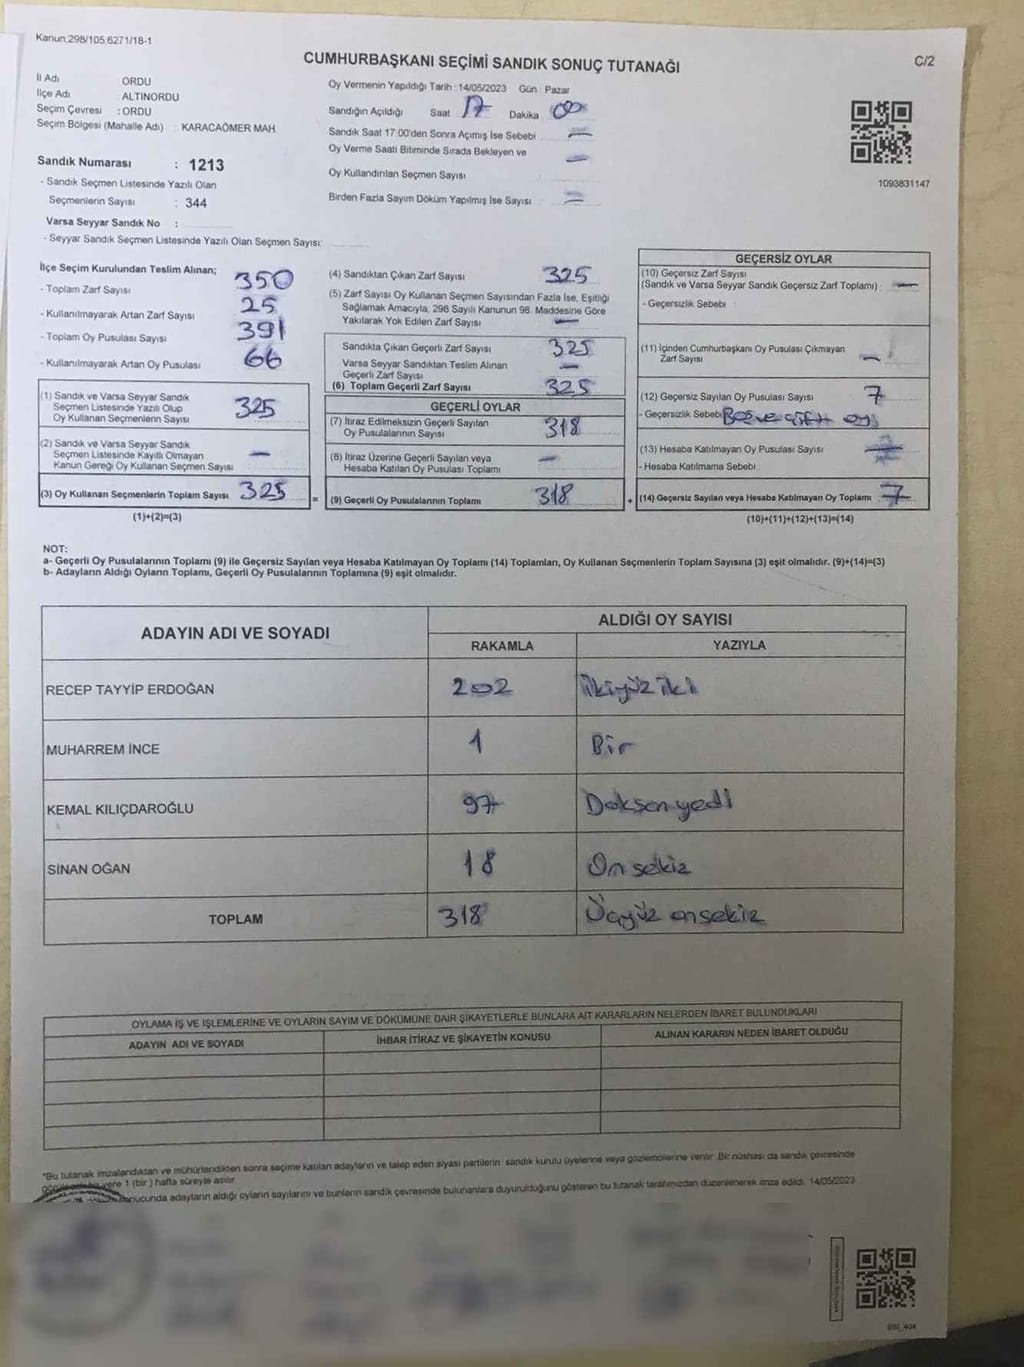 Kanun:298/105,6271/18-1
CUMHURBAŞKANI SEÇİMİ SANDIK SONUÇ TUTANAĞI
C/2
İl Adı ORDU
İlçe Adı ALTINORDU
Seçim Çevresi : ORDU
Seçim Bölgesi (Mahalle Adı) : KARACAÖMER MAH.
Sandık Numarası : 1213
- Sandık Seçmen Listesinde Yazılı Olan
Seçmenlerin Sayısı : 344
Varsa Seyyar Sandık No :
- Seyyar Sandık Seçmen Listesinde Yazılı Olan Seçmen Sayısı:
Oy Vermenin Yapıldığı Tarih : 14/05/2023 Gün : Pazar
Sandığın Açıldığı Saat 17 Dakika 00
Sandık Saat 17.00'den Sonra Açımış İse Sebebi —
Oy Verme Saati Bitiminde Sırada Bekleyen ve
Oy Kullandırılan Seçmen Sayısı —
Birden Fazla Sayım Döküm Yapılmış İse Sayısı —
1093831147
İlçe Seçim Kurulundan Teslim Alınan;
- Toplam Zarf Sayısı 350
- Kullanılmayarak Artan Zarf Sayısı 25
- Toplam Oy Pusulası Sayısı 391
- Kullanılmayarak Artan Oy Pusulası 66
(1) Sandık ve Varsa Seyyar Sandık
Seçmen Listesinde Yazılı Olup
Oy Kullanan Seçmenlerin Sayısı 325
(2) Sandık ve Varsa Seyyar Sandık
Seçmen Listesinde Kayıtlı Olmayan
Kanun Gereği Oy Kullanan Seçmen Sayısı —
(3) Oy Kullanan Seçmenlerin Toplam Sayısı 325
(1)+(2)=(3)
(4) Sandıktan Çıkan Zarf Sayısı 325
(5) Zarf Sayısı Oy Kullanan Seçmen Sayısından Fazla İse, Eşitliği
Sağlamak Amacıyla, 298 Sayılı Kanunun 98. Maddesine Göre
Yakılarak Yok Edilen Zarf Sayısı —
Sandıkta Çıkan Geçerli Zarf Sayısı 325
Varsa Seyyar Sandıktan Teslim Alınan
Geçerli Zarf Sayısı —
(6) Toplam Geçerli Zarf Sayısı 325
GEÇERLİ OYLAR
(7) İtiraz Edilmeksizin Geçerli Sayılan
Oy Pusulalarının Sayısı 318
(8) İtiraz Üzerine Geçerli Sayılan veya
Hesaba Katılan Oy Pusulası Toplamı —
= (9) Geçerli Oy Pusulalarının Toplamı 318
GEÇERSİZ OYLAR
(10) Geçersiz Zarf Sayısı
(Sandık ve Varsa Seyyar Sandık Geçersiz Zarf Toplamı) : —
- Geçersizlik Sebebi
(11) İçinden Cumhurbaşkanı Oy Pusulası Çıkmayan
Zarf Sayısı —
(12) Geçersiz Sayılan Oy Pusulası Sayısı 7
- Geçersizlik Sebebi Boş ve çift oy
(13) Hesaba Katılmayan Oy Pusulası Sayısı
- Hesaba Katılmama Sebebi
+ (14) Geçersiz Sayılan veya Hesaba Katılmayan Oy Toplamı 7
(10)+(11)+(12)+(13)=(14)
NOT:
a- Geçerli Oy Pusulalarının Toplamı (9) ile Geçersiz Sayılan veya Hesaba Katılmayan Oy Toplamı (14) Toplamları, Oy Kullanan Seçmenlerin Toplam Sayısına (3) eşit olmalıdır. (9)+(14)=(3)
b- Adayların Aldığı Oyların Toplamı, Geçerli Oy Pusulalarının Toplamına (9) eşit olmalıdır.
ADAYIN ADI VE SOYADI ALDIĞI OY SAYISI
RAKAMLA YAZIYLA
RECEP TAYYİP ERDOĞAN 202 ikiyüz iki
MUHARREM İNCE 1 Bir
KEMAL KILIÇDAROĞLU 97 Doksan yedi
SİNAN OĞAN 18 On sekiz
TOPLAM 318 Üçyüz onsekiz
OYLAMA İŞ VE İŞLEMLERİNE VE OYLARIN SAYIM VE DÖKÜMÜNE DAİR ŞİKAYETLERLE BUNLARA AİT KARARLARIN NELERDEN İBARET BULUNDUKLARI
ADAYIN ADI VE SOYADI İHBAR İTİRAZ VE ŞİKAYETİN KONUSU ALINAN KARARIN NEDEN İBARET OLDUĞU
*Bu tutanak imzalandıktan ve mühürlendikten sonra seçime katılan adayların ve talep eden siyasi partilerin sandık kurulu üyelerine veya gözlemcilerine verilir. Bir nüshası da sandık çevresinde
yere 1 (bir) hafta süreyle asılır.
adayların aldığı oyların sayılarını ve bunların sandık çevresinde bulunanlara duyurulduğunu gösteren bu tutanak tarafımızdan düzenlenerek imza edildi. 14/05/2023